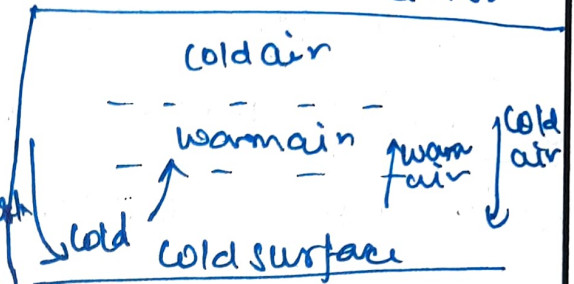 cold air
warm air
warm
air
cold
air
cold
cold surface